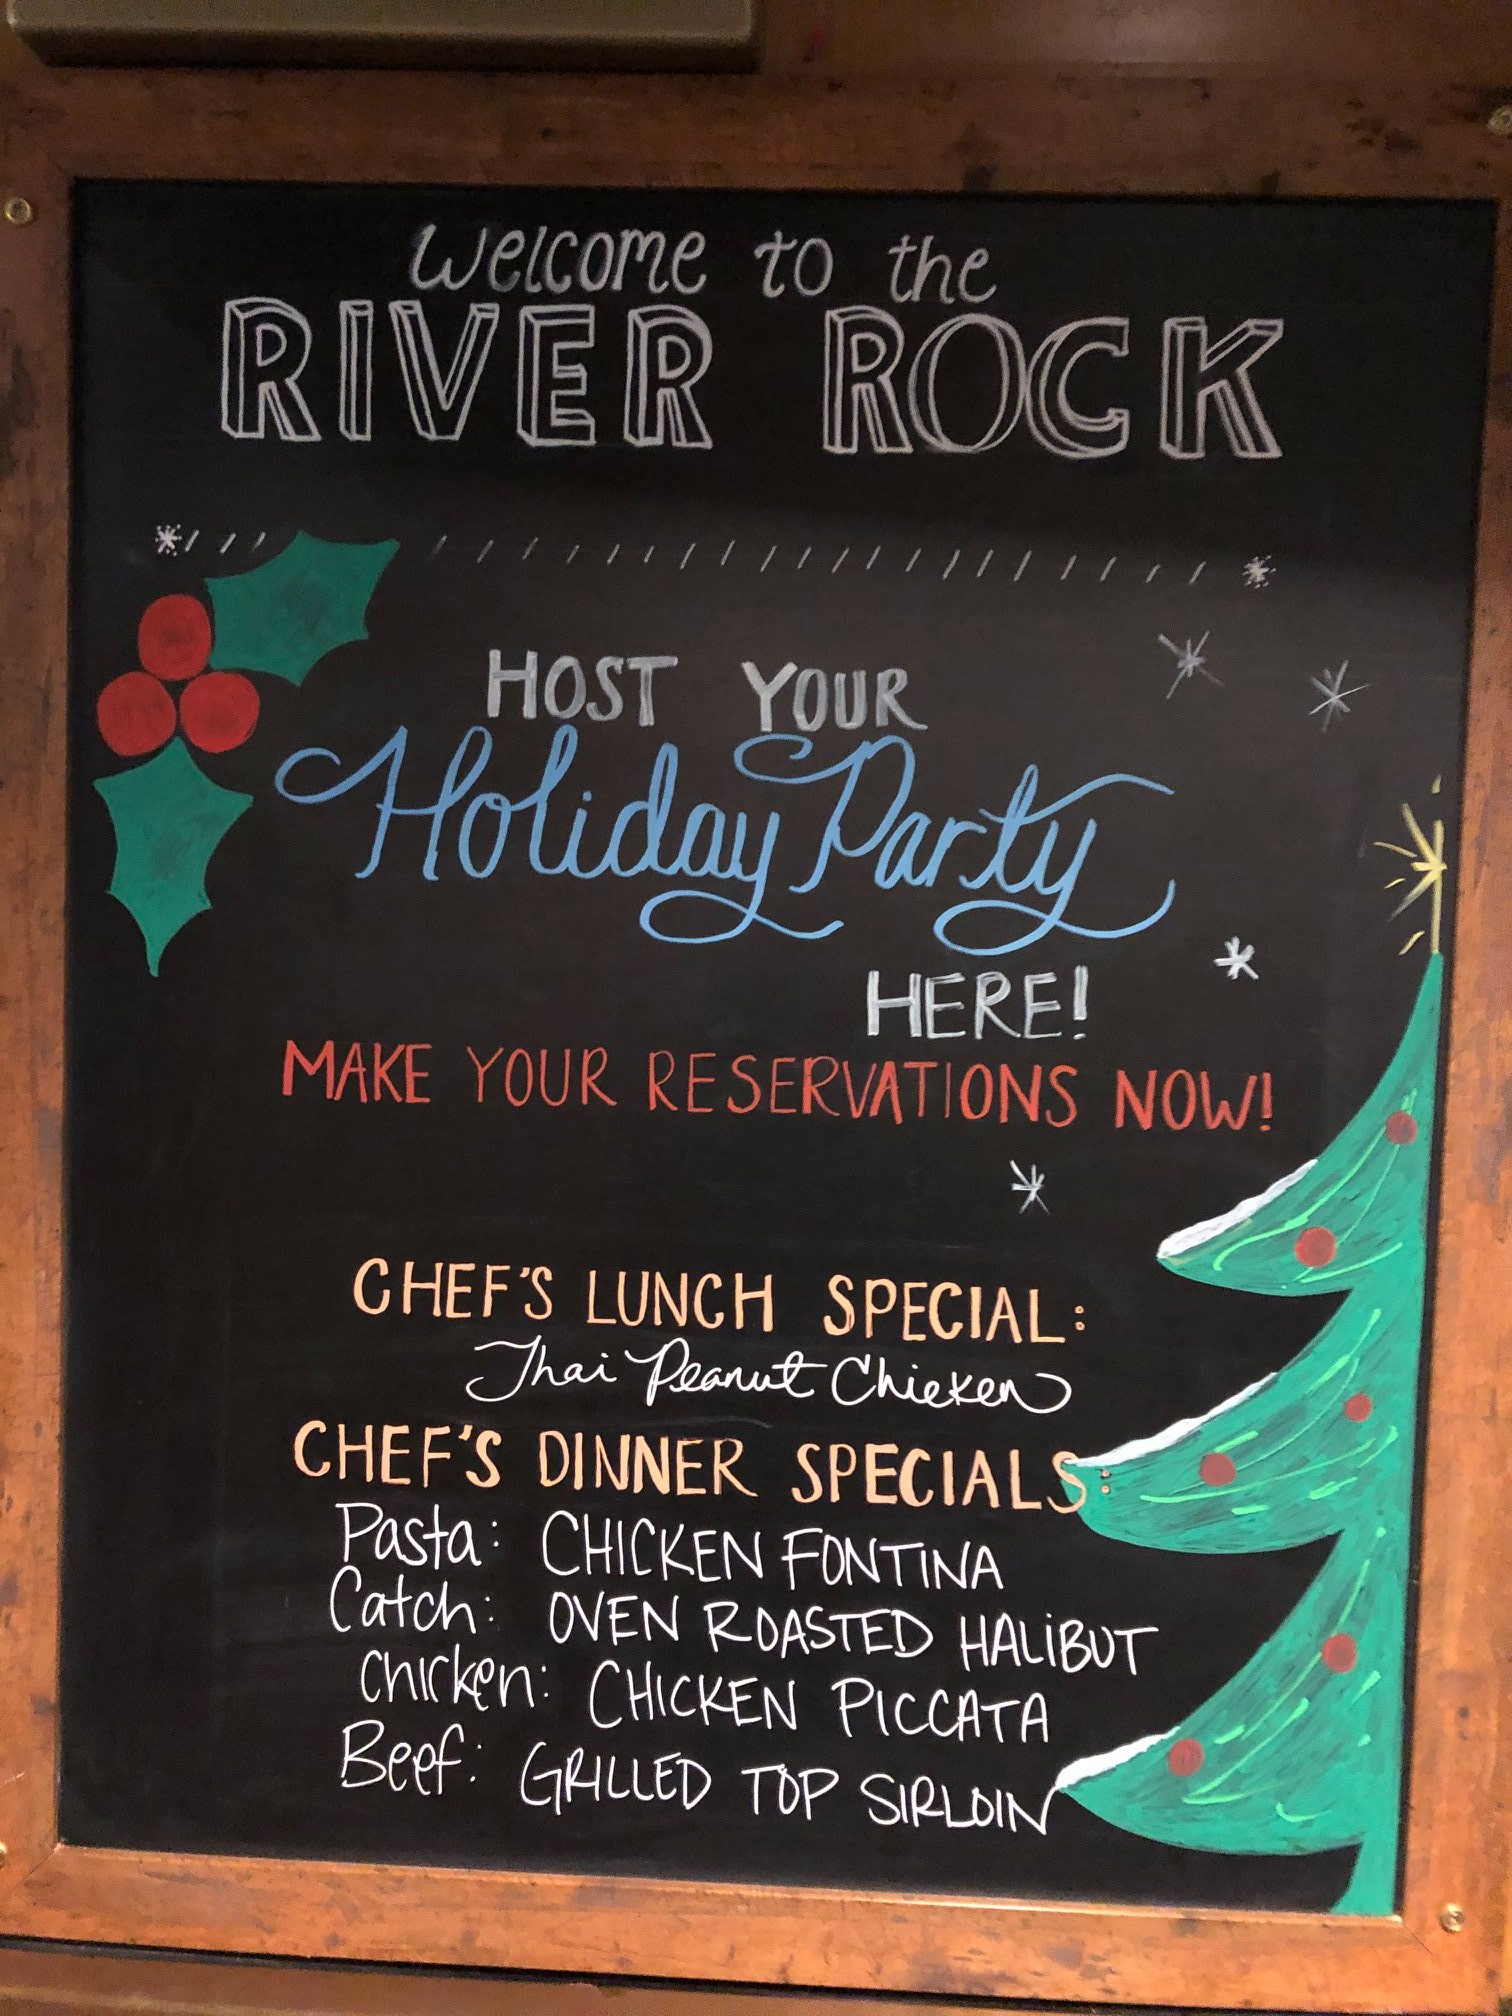 Welcome to the
RIVER ROCK
HOST YOUR
Holiday Party
HERE!
MAKE YOUR RESERVATIONS NOW!
CHEF'S LUNCH SPECIAL:
Thai Peanut Chicken
CHEF'S DINNER SPECIALS:
Pasta: CHICKEN FONTINA
Catch: OVEN ROASTED HALIBUT
Chicken: CHICKEN PICCATA
Beef: GRILLED TOP SIRLOIN